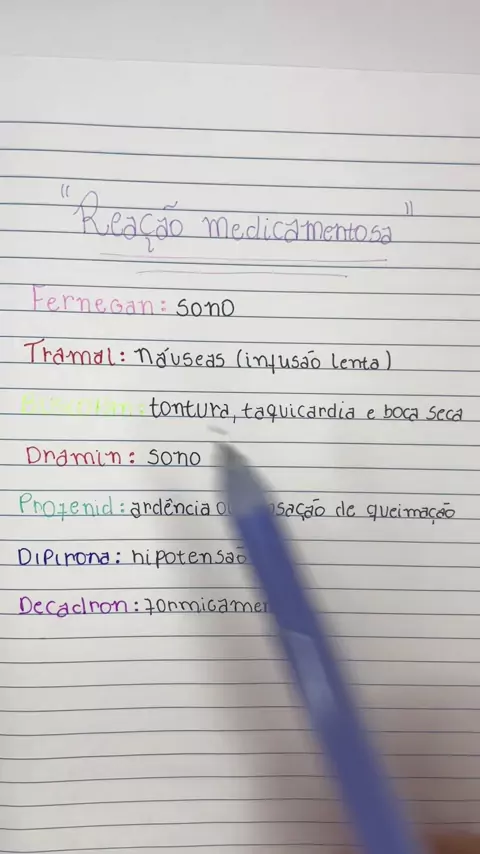 "Reação medicamentosa"
Fernegan: sono
Tramal: náuseas (infusão lenta)
tontura, taquicardia e boca seca
Dramin: sono
Profenid: ardência de queimação
Dipirona: hipotensão
Decadron: